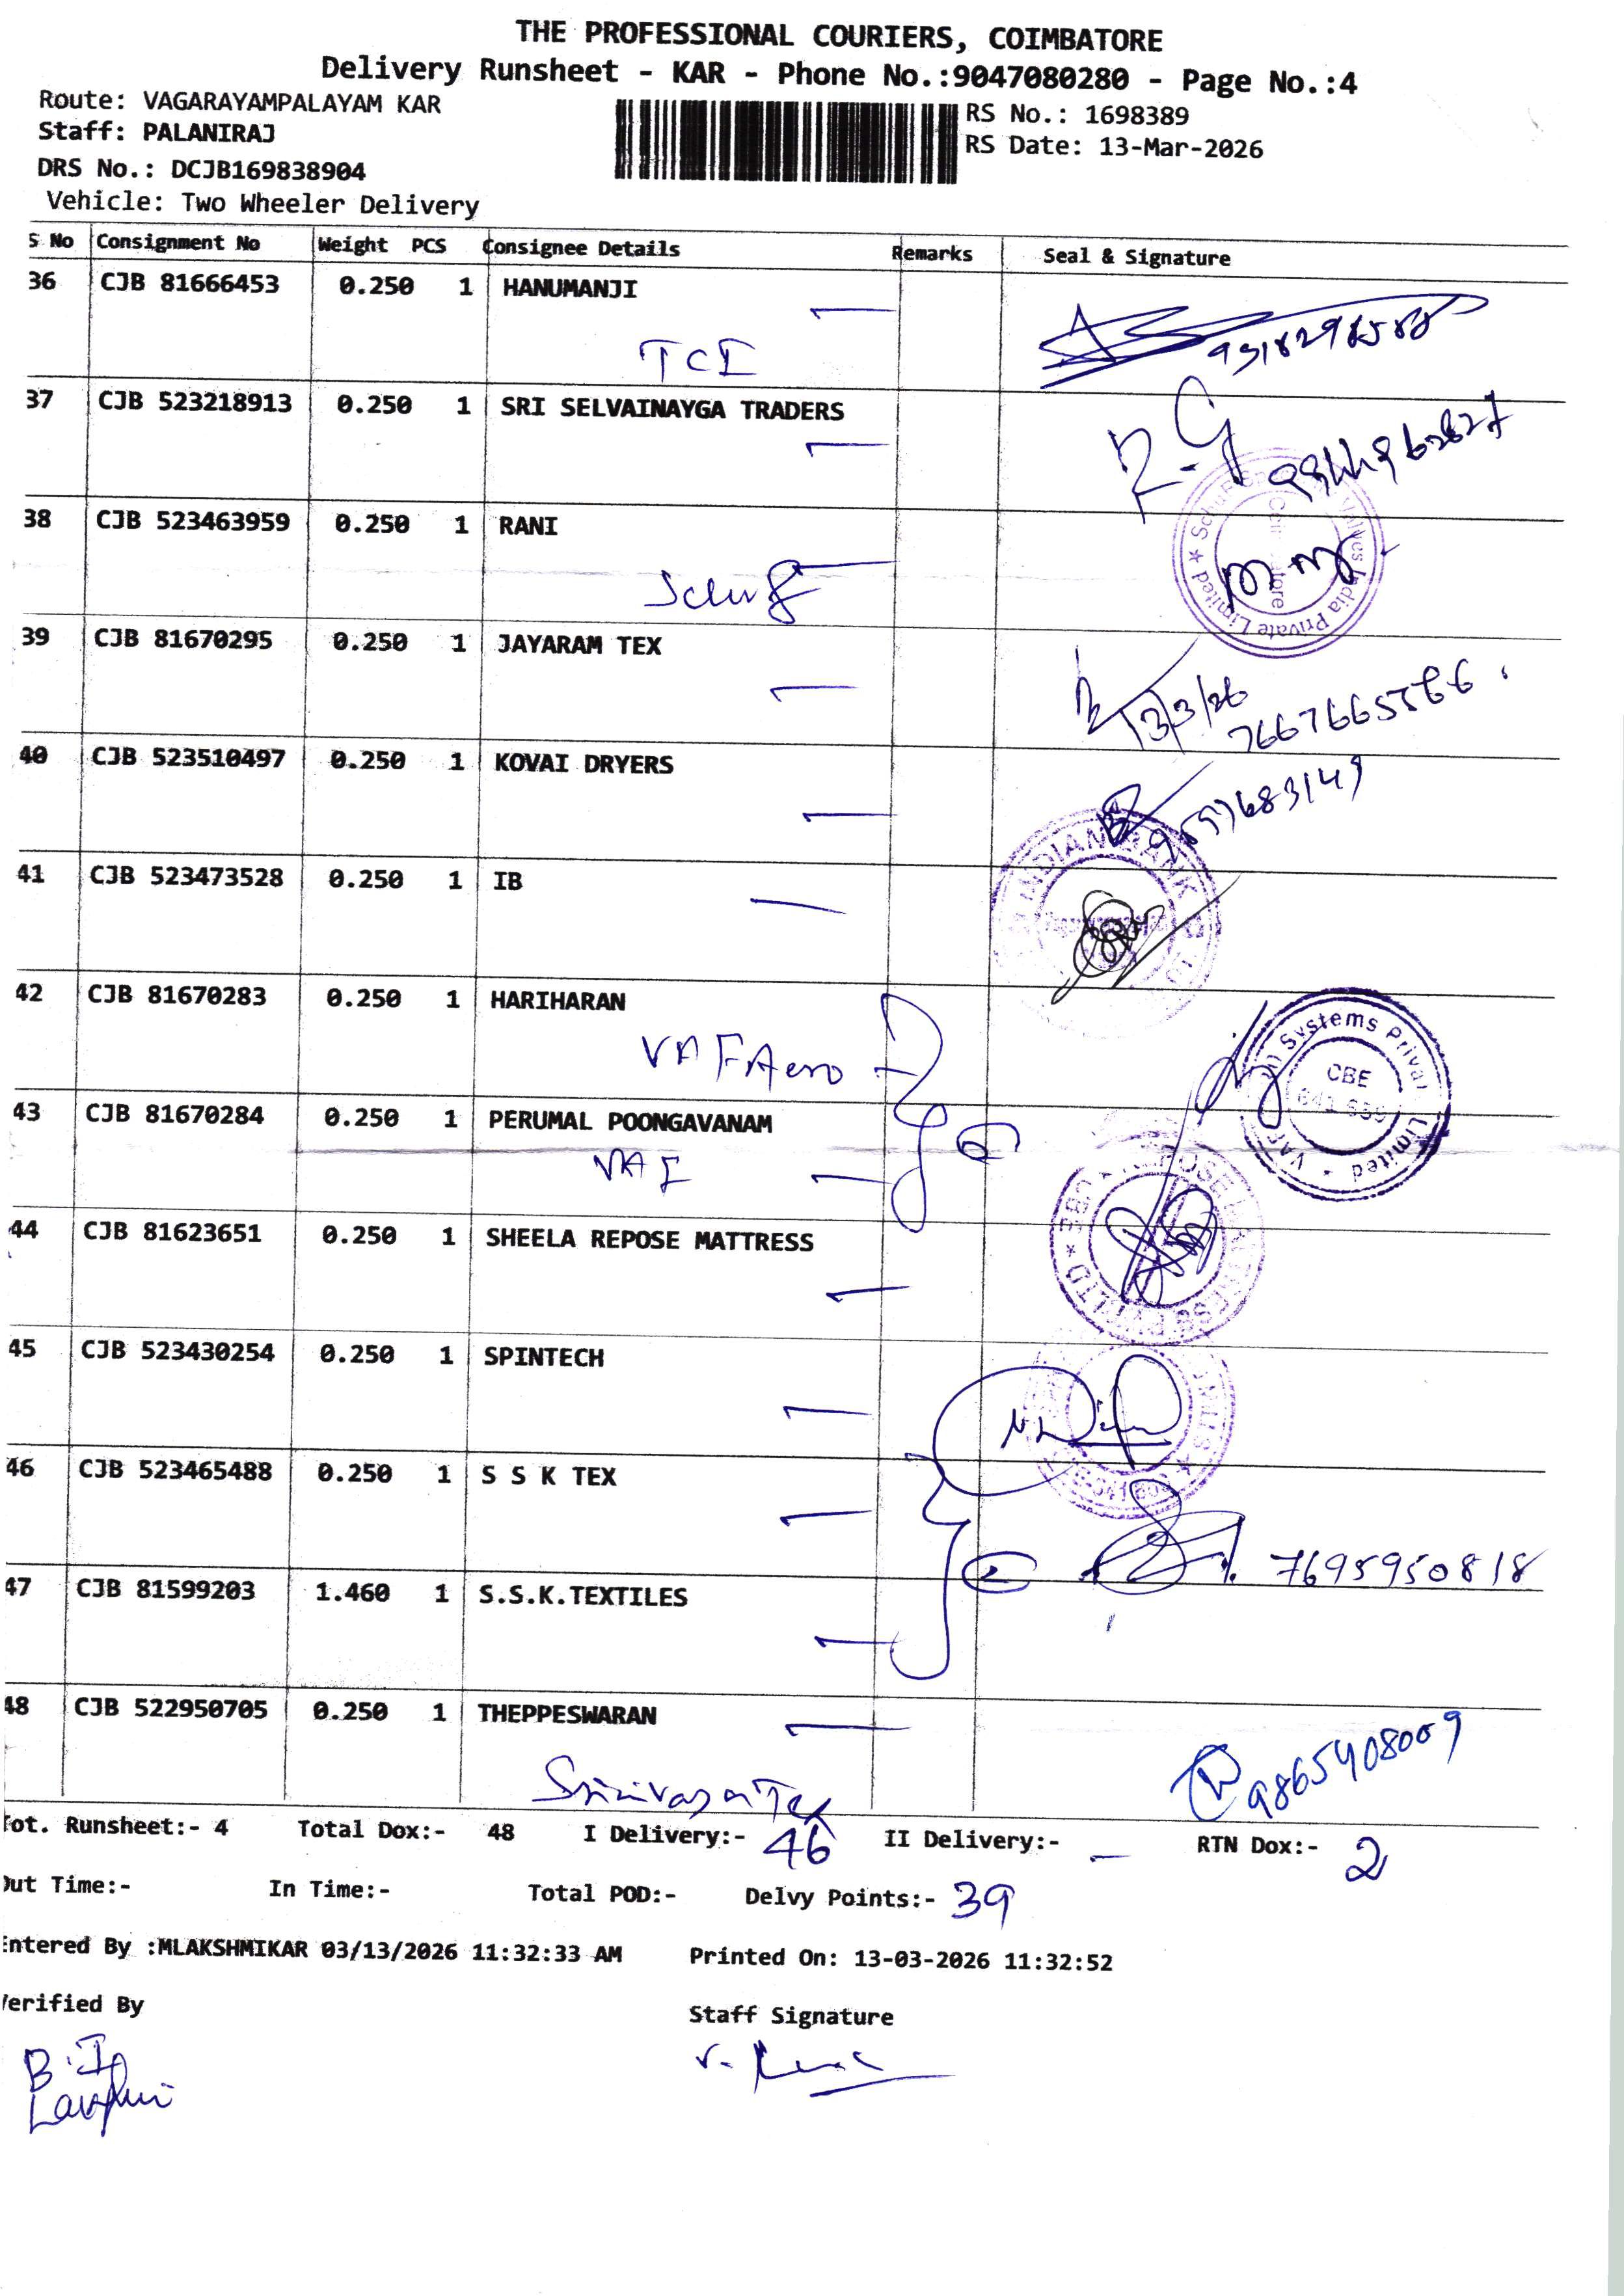 THE PROFESSIONAL COURIERS, COIMBATORE
Delivery Runsheet - KAR - Phone No.:9047080280 - Page No.:4
Route: VAGARAYAMPALAYAM KAR
Staff: PALANIRAJ
DRS No.: DCJB169838904
Vehicle: Two Wheeler Delivery
RS No.: 1698389
RS Date: 13-Mar-2026
S No Consignment No Weight PCS Consignee Details Remarks Seal & Signature
36 CJB 81666453 0.250 1 HANUMANJI
TCI
37 CJB 523218913 0.250 1 SRI SELVAINAYGA TRADERS
R.G
38 CJB 523463959 0.250 1 RANI
India Private Limited
39 CJB 81670295 0.250 1 JAYARAM TEX
13/3/26
40 CJB 523510497 0.250 1 KOVAI DRYERS
41 CJB 523473528 0.250 1 IB
INDIAN BANK
42 CJB 81670283 0.250 1 HARIHARAN
VAF Aero
Systems Private Limited
CBE
43 CJB 81670284 0.250 1 PERUMAL POONGAVANAM
44 CJB 81623651 0.250 1 SHEELA REPOSE MATTRESS
45 CJB 523430254 0.250 1 SPINTECH
46 CJB 523465488 0.250 1 S S K TEX
2 7695950818
47 CJB 81599203 1.460 1 S.S.K.TEXTILES
48 CJB 522950705 0.250 1 THEPPESWARAN
9865408009
Srinivasa Tex
Tot. Runsheet:- 4 Total Dox:- 48 I Delivery:- 46 II Delivery:- - RTN Dox:- 2
Out Time:- In Time:- Total POD:- Delvy Points:- 39
Entered By :MLAKSHMIKAR 03/13/2026 11:32:33 AM Printed On: 13-03-2026 11:32:52
Verified By Staff Signature